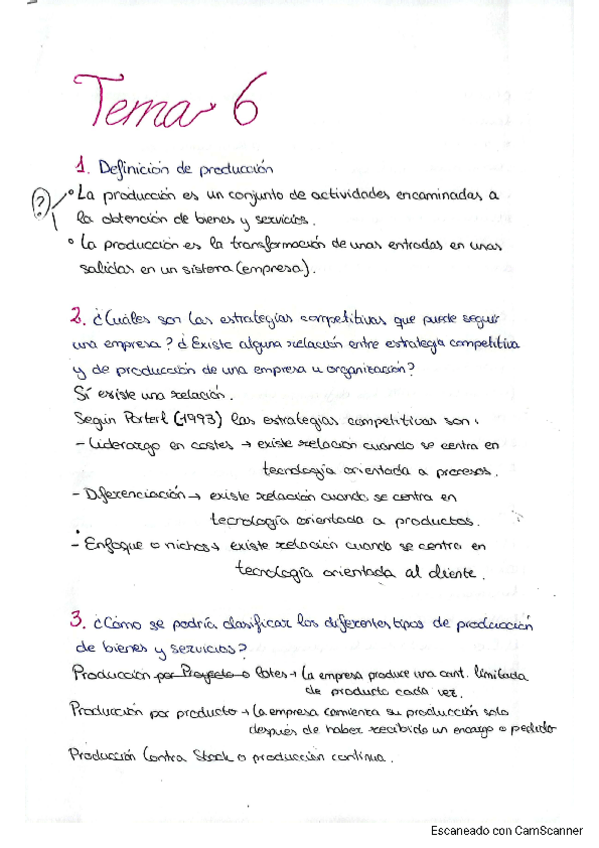 Tema 6
1. Definición de producción
? • La producción es un conjunto de actividades encaminadas a
la obtención de bienes y servicios.
• La producción es la transformación de unas entradas en unas
salidas en un sistema (empresa).
2. ¿Cuáles son las estrategias competitivas que puede seguir
una empresa? ¿Existe alguna relación entre estrategia competitiva
y de producción de una empresa u organización?
Sí existe una relación.
Según Portert (1993) las estrategias competitivas son:
- Liderazgo en costes → existe relación cuando se centra en
tecnología orientada a procesos.
- Diferenciación → existe relación cuando se centra en
tecnología orientada a productos.
- Enfoque o nichos → existe relación cuando se centra en
tecnología orientada al cliente.
3. ¿Cómo se podría clasificar los diferentes tipos de producción
de bienes y servicios?
Producción por Proyecto o lotes → La empresa produce una cant. limitada
de producto cada vez.
Producción por producto → La empresa comienza su producción solo
después de haber recibido un encargo o pedido
Producción Contra Stock o producción continua.
Escaneado con CamScanner